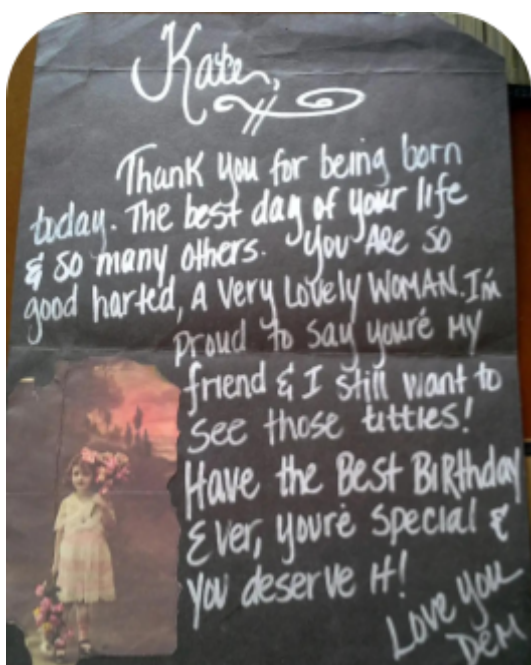 Kate,
Thank you for being born
today. The best day of your life
& so many others. You ARE so
good harted, A very lovely WOMAN. I'm
proud to say you're MY
friend & I still want to
see those titties!
Have the Best BiRthday
Ever, you're special &
you deserve it!
Love you
DeM